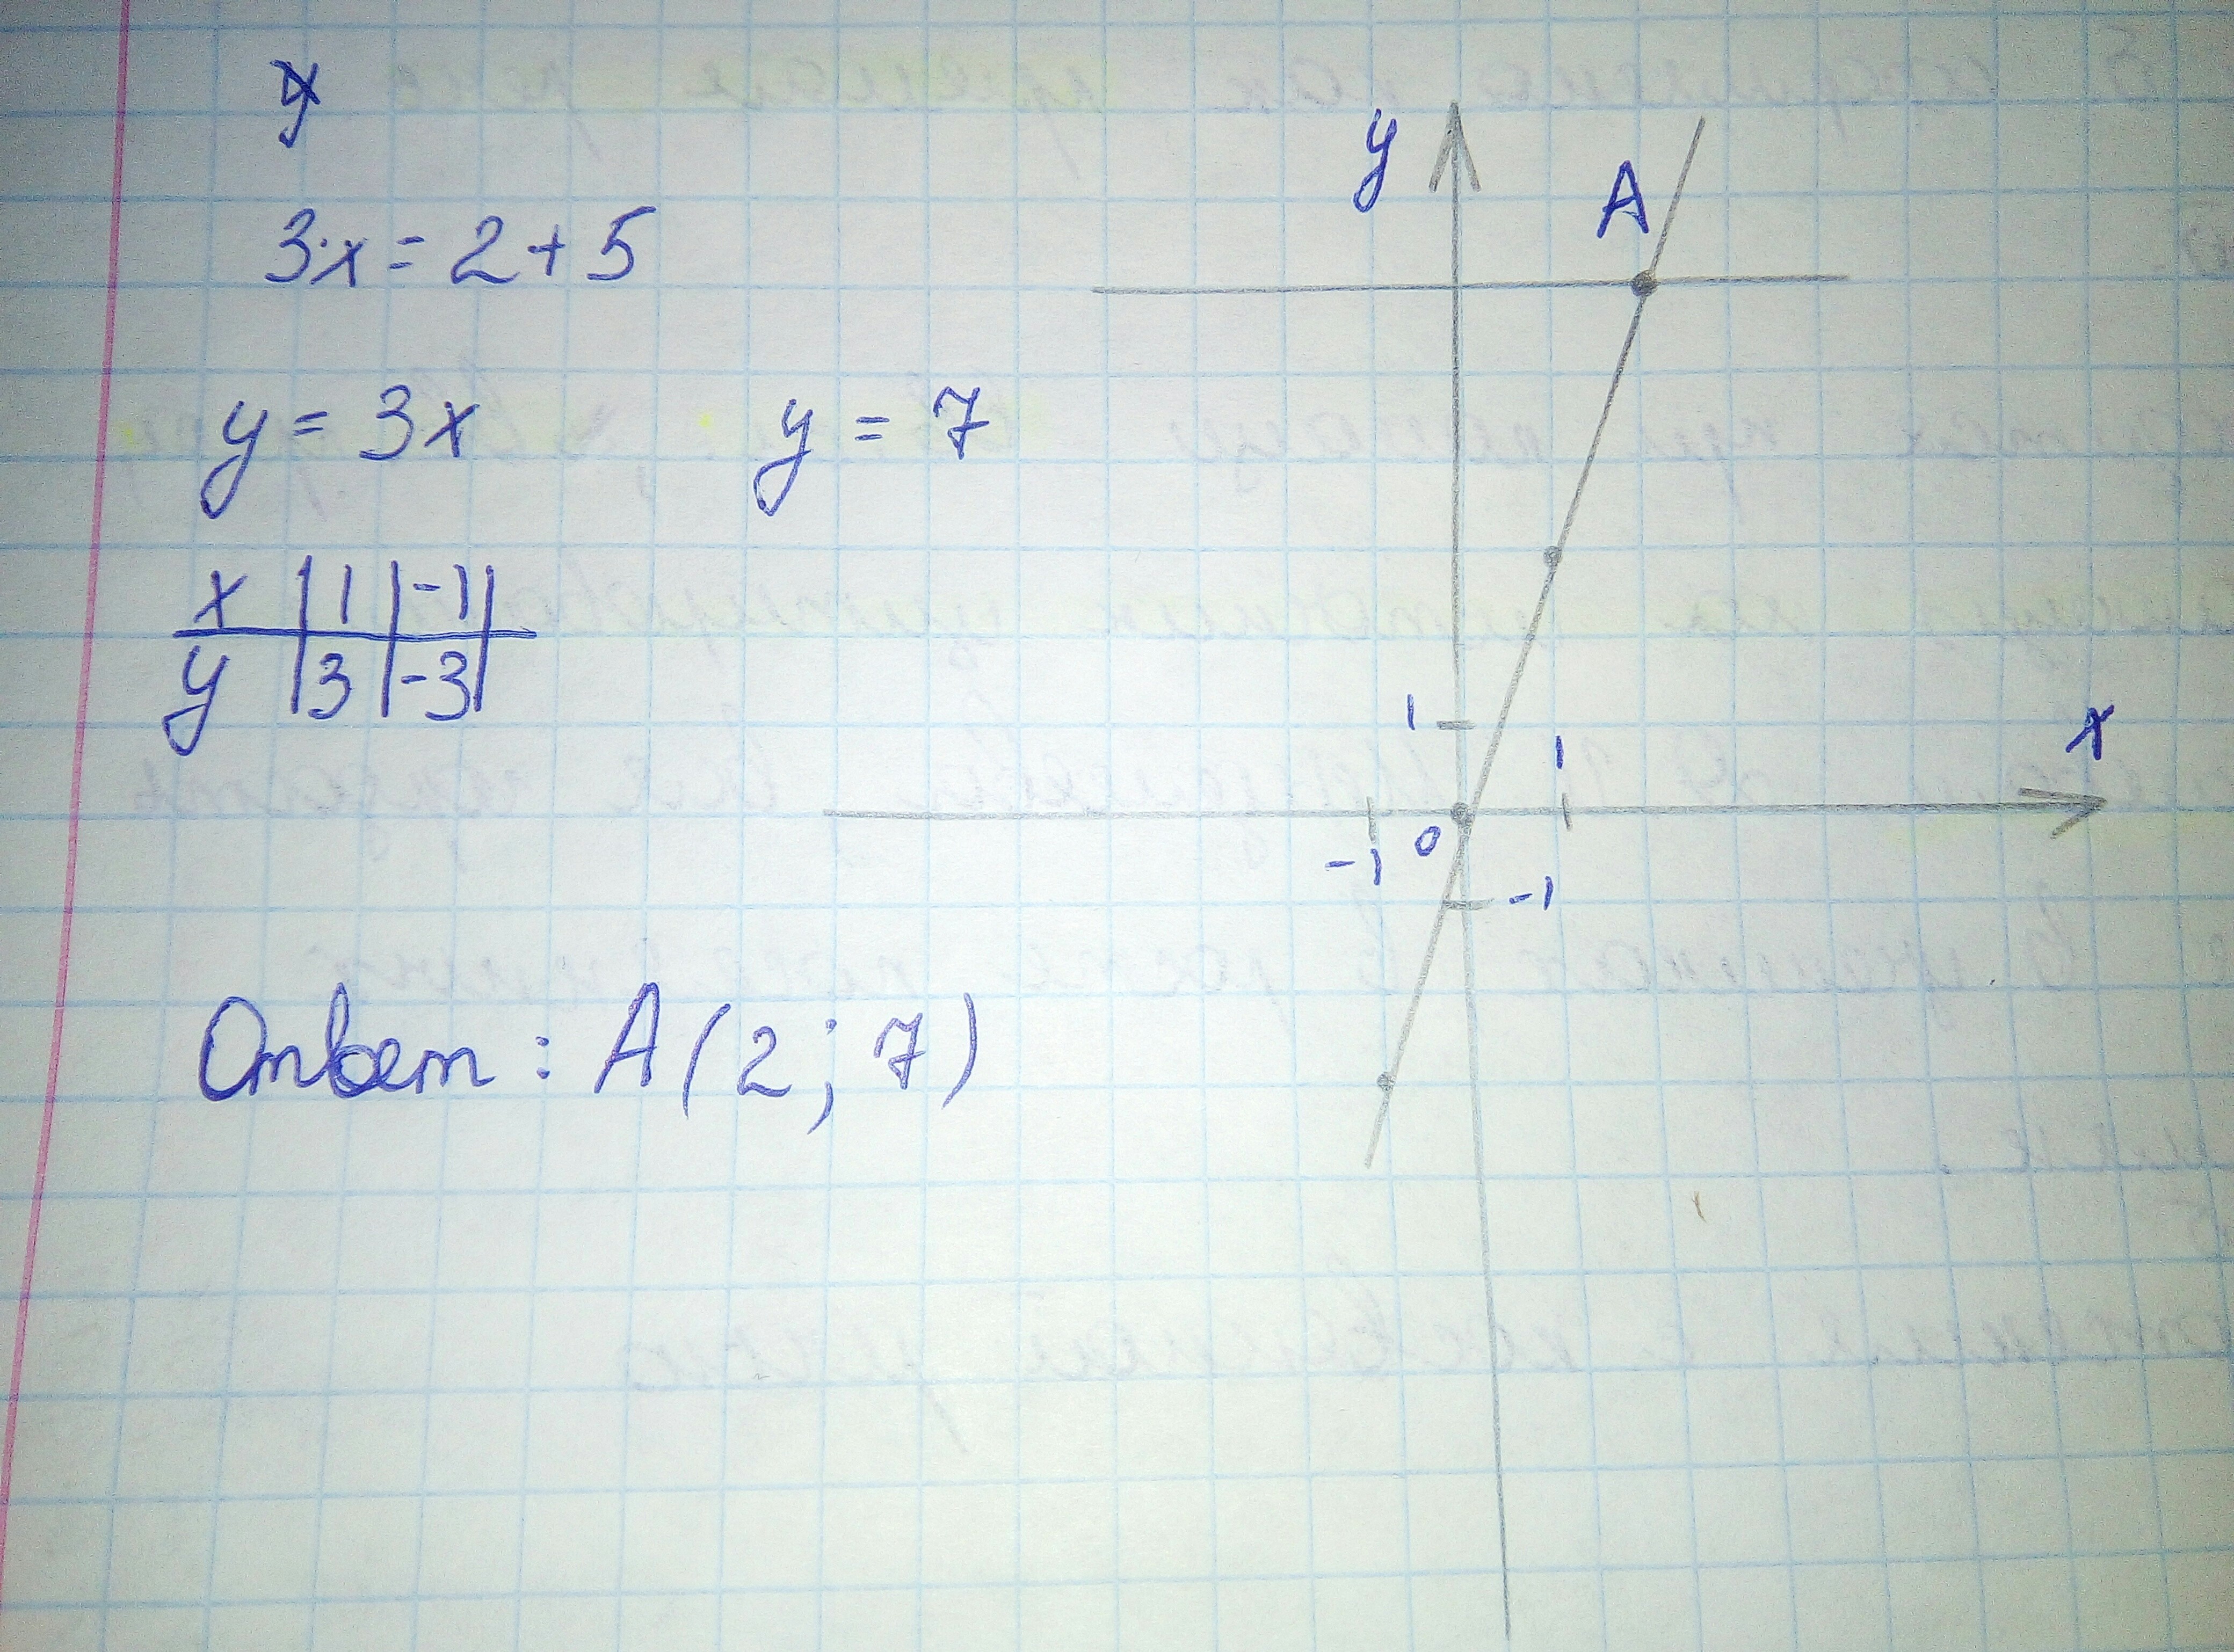 3·x = 2 + 5
y = 3x y = 7
x | 1 | -1 |
y | 3 | -3 |
Ответ: A(2; 7)
y
A
1
1
x
-1 0
-1